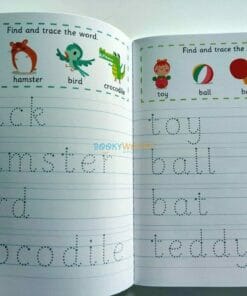 Find and trace the word.
hamster bird crocodile
ck
mster
rd
ocodile
Find and trace the
toy ball
toy
ball
bat
teddy